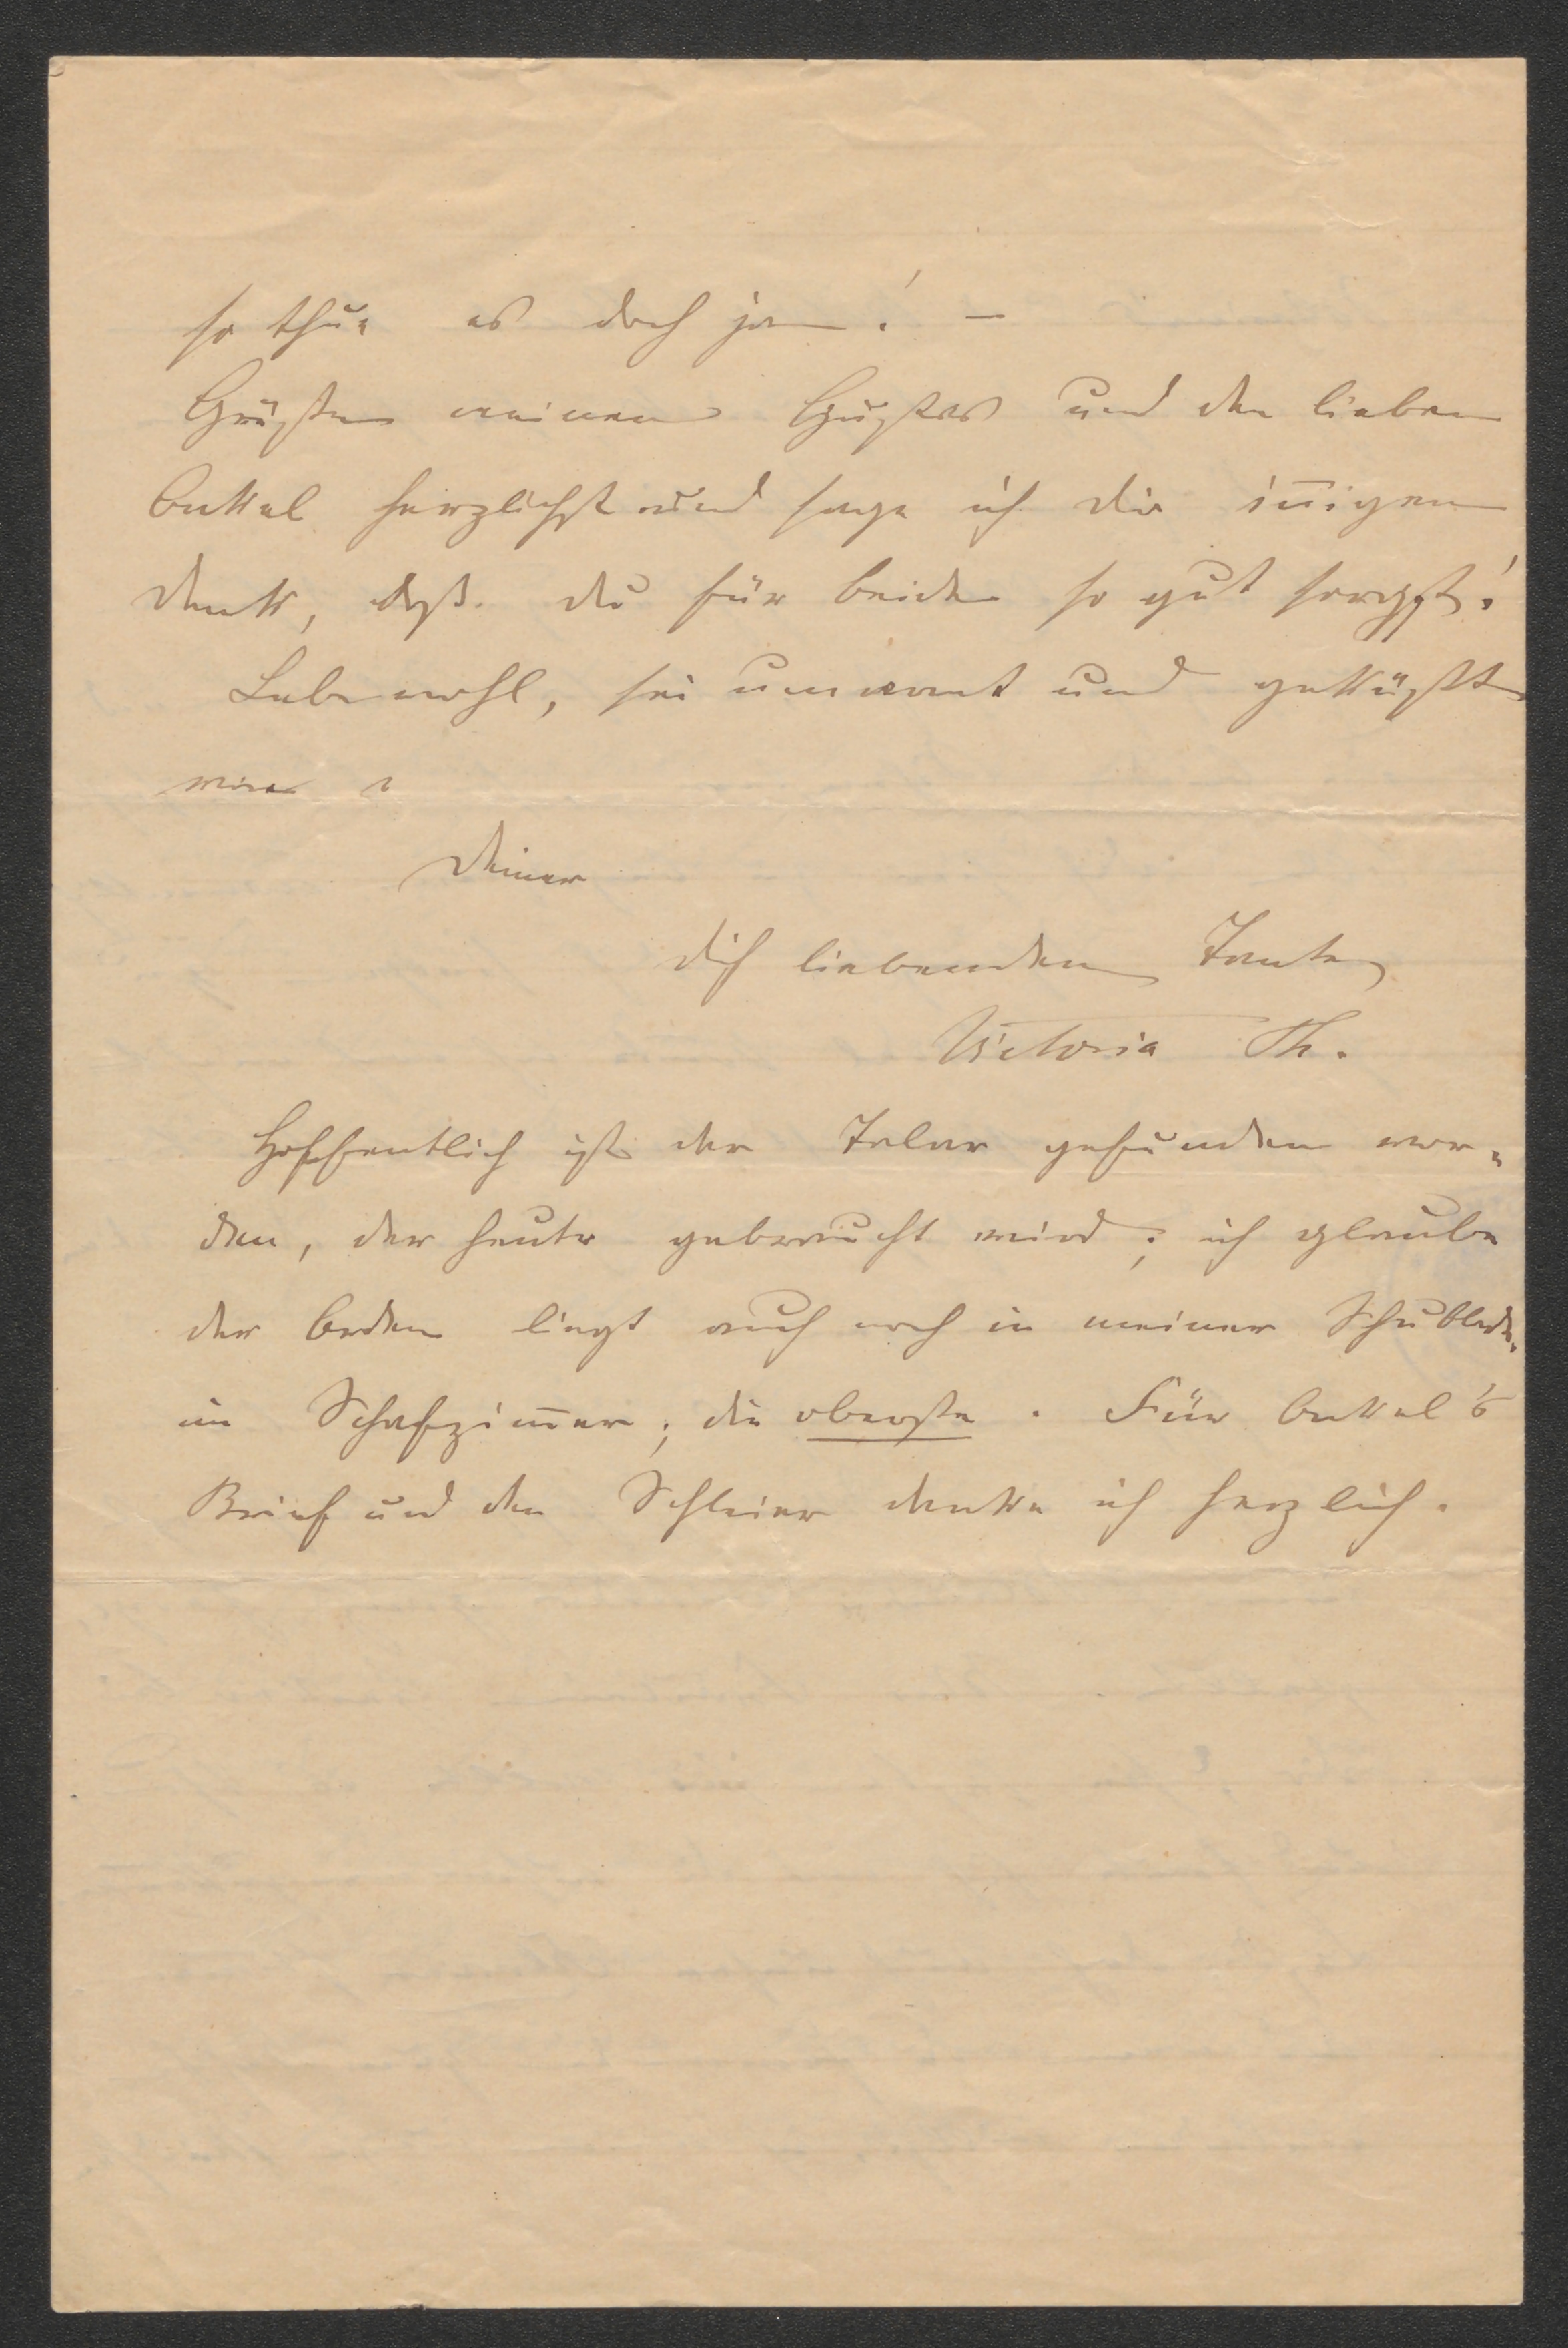 so thue es doch ja! —
Grüße meinen Gustav und den lieben
Onkel herzlichst und sage ich dir innigen
Dank, daß du für beide so gut sorgst!
Lebe wohl, sei umarmt und geküßt
von
Deiner
Dich liebenden Tante
Victoria Th.
Hoffentlich ist der Talar gefunden wor-
den, der heute gebraucht wird; ich glaube
der Orden liegt auch noch in meiner Schublade
im Schafzimmer; die oberste. Für Onkel's
Brief und den Schleier danke ich herzlich.